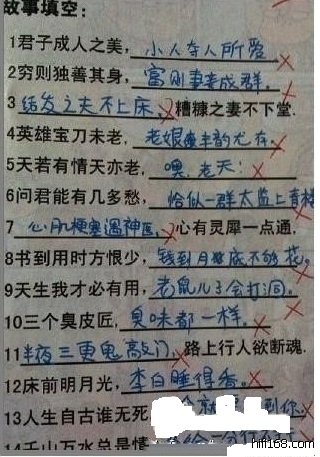 故事填空:
1君子成人之美,小人夺人所爱
2穷则独善其身,富则妻妾成群,
3结发之夫不上床,糟糠之妻不下堂.
4英雄宝刀未老,老娘风韵尤存,
5天若有情天亦老,噢,老天!
6问君能有几多愁,恰似一群太监上青楼
7心肌梗塞遇神医,心有灵犀一点通,
8书到用时方恨少,钱到月底不够花。
9天生我才必有用,老鼠儿子会打洞。
10三个臭皮匠,臭味都一样。
11半夜三更鬼敲门,路上行人欲断魂.
12床前明月光,李白睡得香。
13人生自古谁无死,到你.
14千山万水总是情
hifi168.com